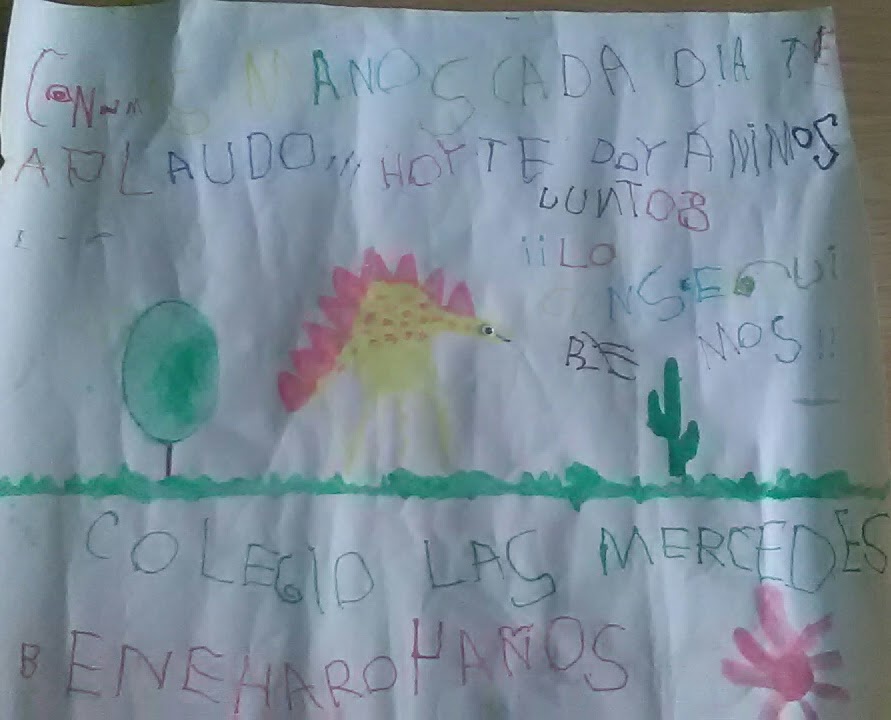 CON MANOS CADA DIA TE
APLAUDO,,, HOY TE DOY ÁNIMOS
JUNTOS
¡¡LO
CONSEGUI
RE MOS!!
COLEGIO LAS MERCEDES
BENEHARO 4 AÑOS